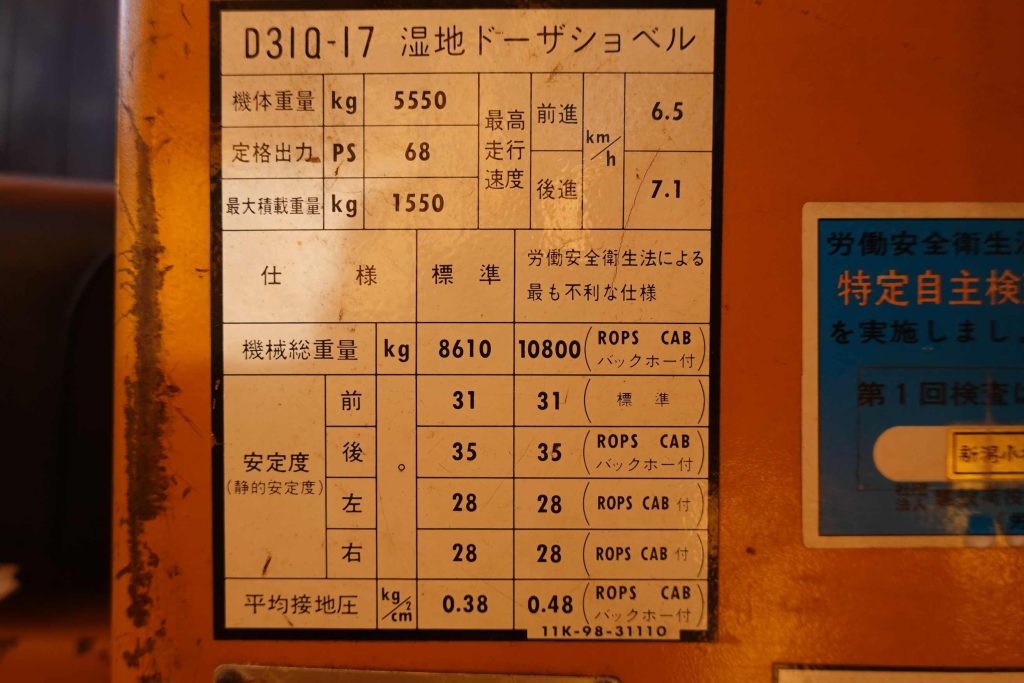 D31Q-17 湿地ドーザショベル
機体重量 kg 5550
定格出力 PS 68
最大積載重量 kg 1550
最高走行速度 km/h
前進 6.5
後進 7.1
仕様 標準 労働安全衛生法による
最も不利な仕様
機械総重量 kg 8610 10800 (ROPS CAB
バックホー付)
安定度
(静的安定度)
前 31 31 (標準)
後 35 35 (ROPS CAB
バックホー付)
。
左 28 28 (ROPS CAB付)
右 28 28 (ROPS CAB付)
平均接地圧 kg/cm² 0.38 0.48 (ROPS CAB
バックホー付)
11K-98-31110
労働安全衛生法
特定自主検
を実施しまし
第1回検査は
新潟小